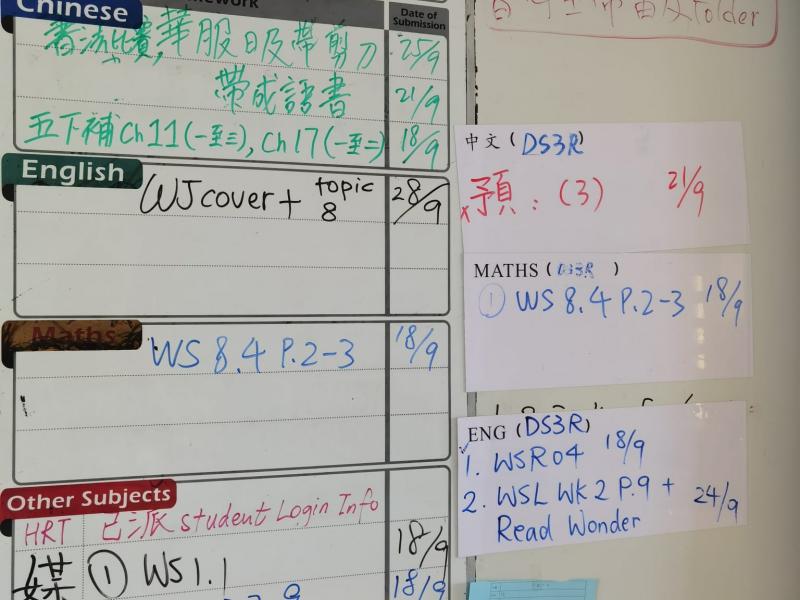 Chinese
Date of
Submission
華服日及帶剪刀 25/9
帶成語書 21/9
五下補Ch11(一至三), Ch17(一至二) 18/9
English
WJ cover + topic 8 28/9
Maths
WS 8.4 P.2-3 18/9
Other Subjects
HRT 已派 student Login Info
① WS 1.1 18/9
18/9
folder
中文 (DS3R)
預：(3) 21/9
MATHS (DS3R)
① WS 8.4 P.2-3 18/9
ENG (DS3R)
1. WSR04 18/9
2. WSL WK2 P.9 + 24/9
Read Wonder